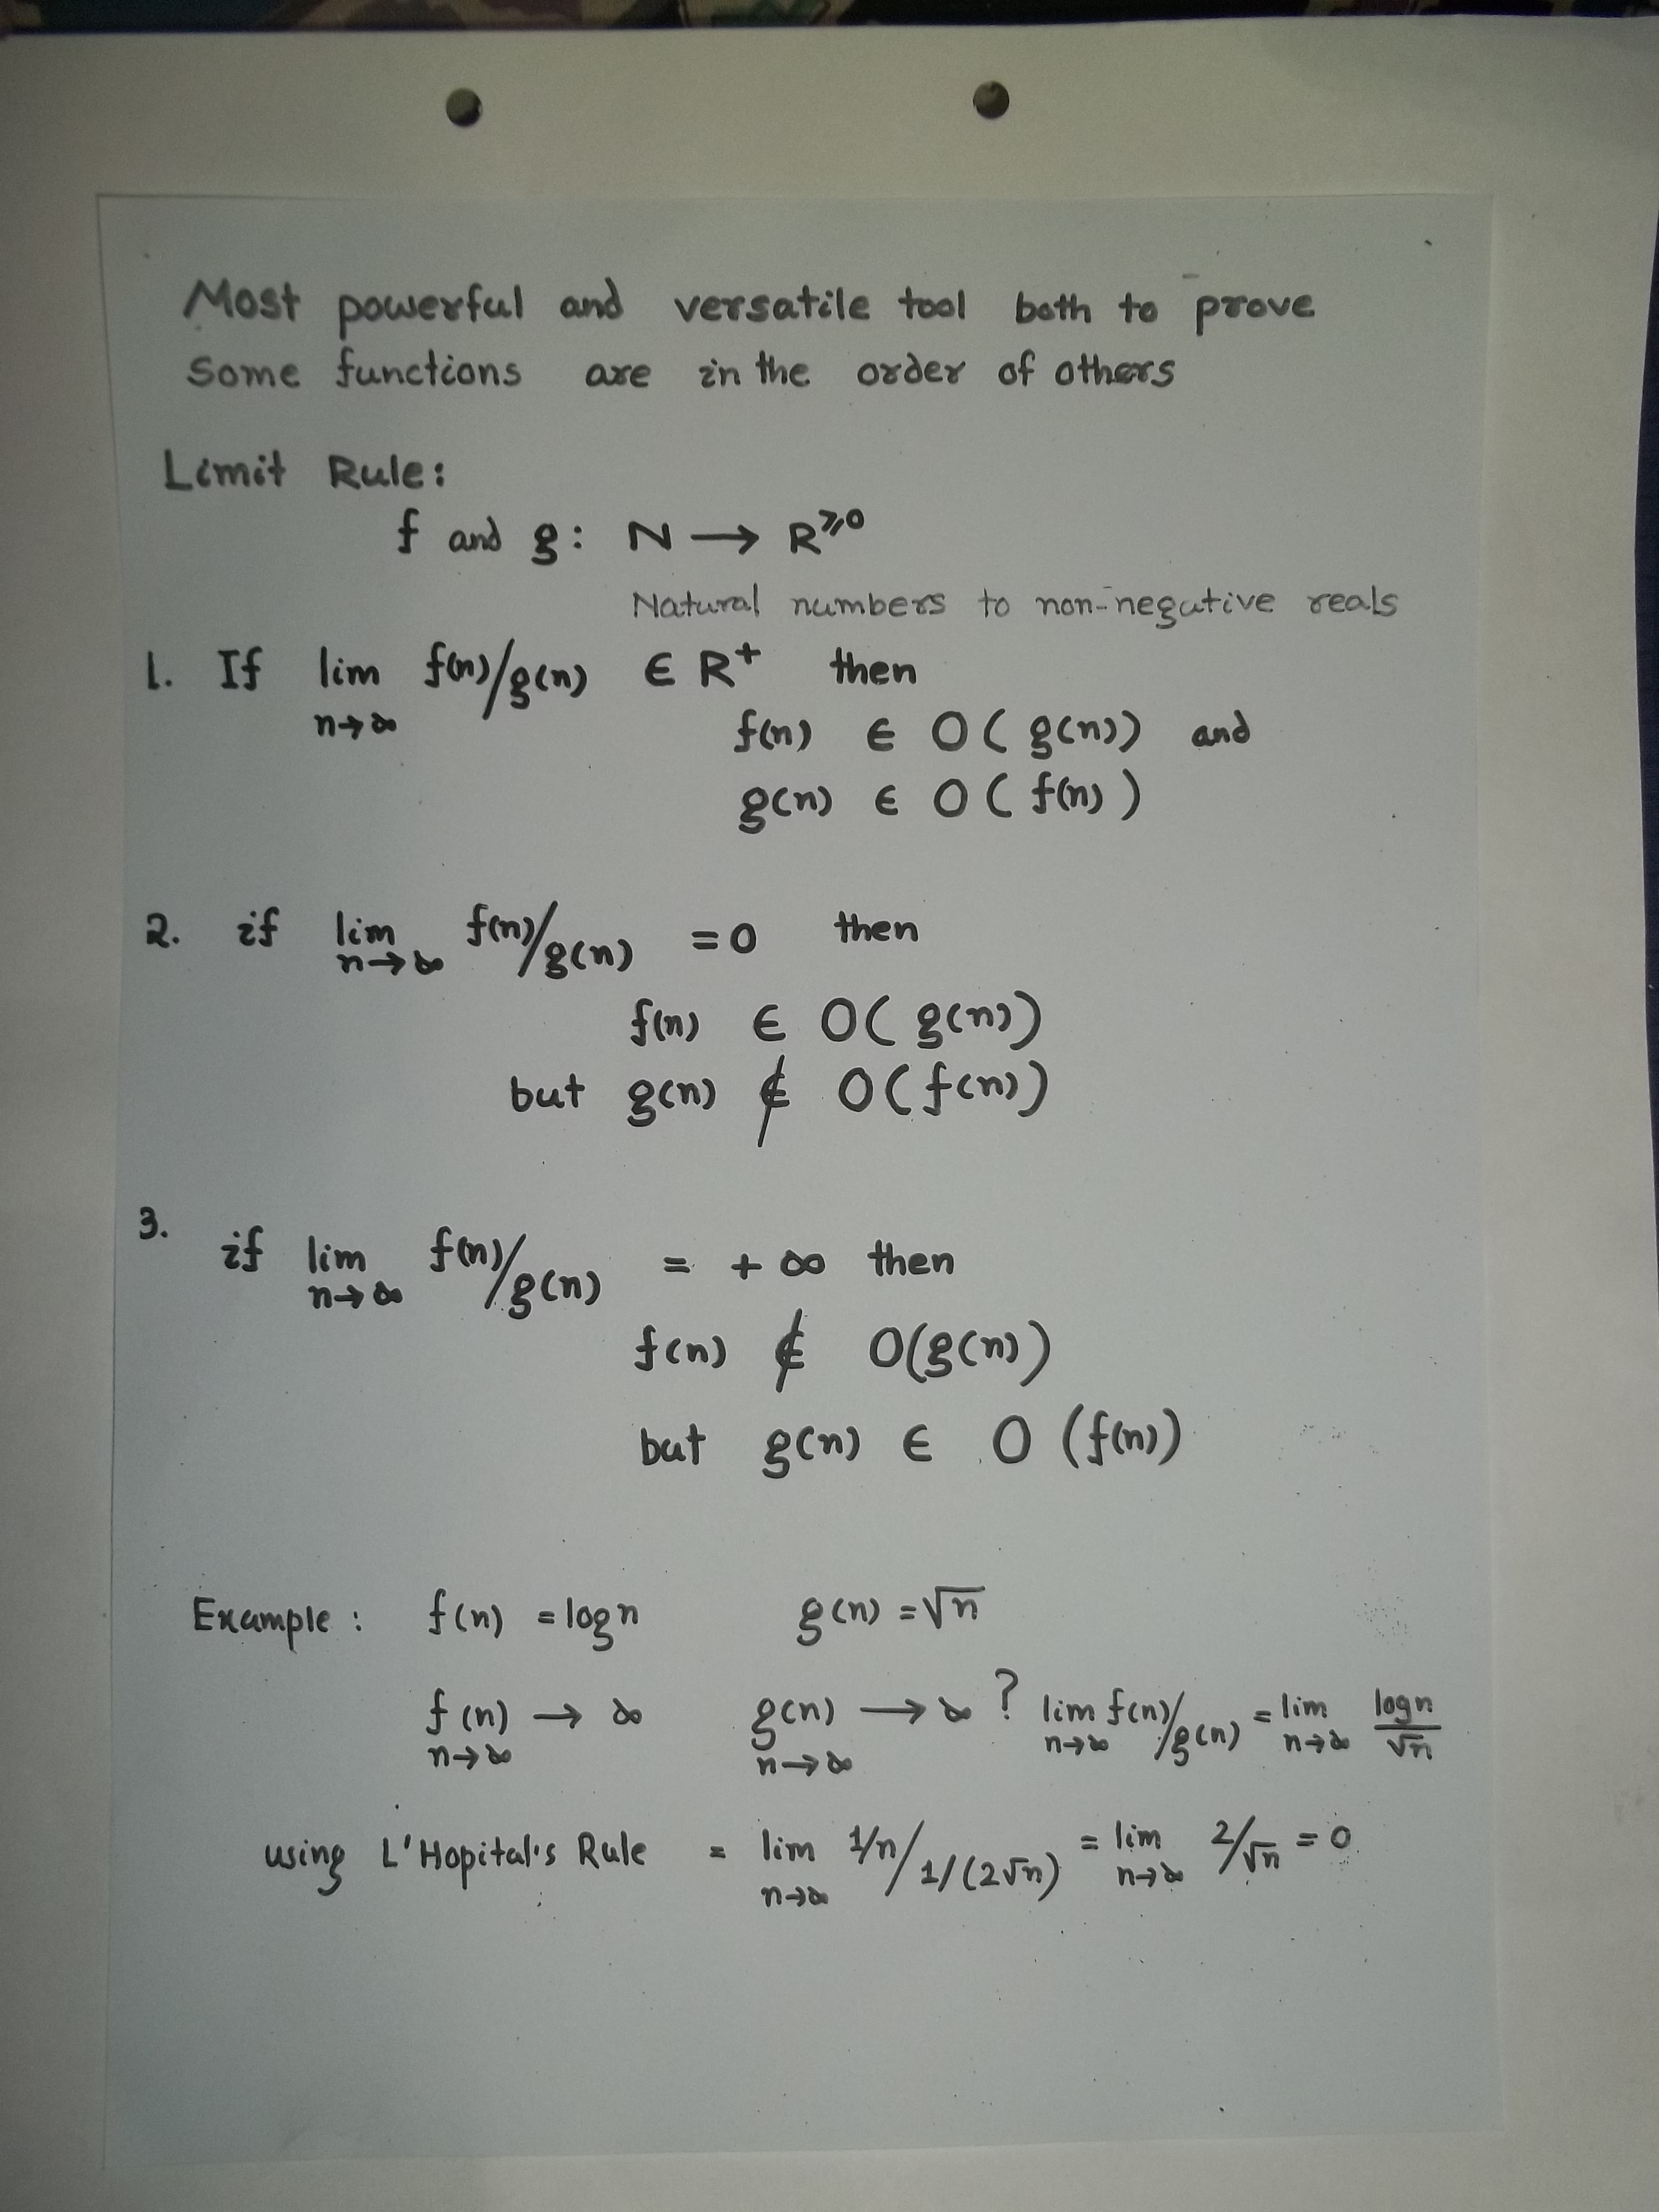 Most powerful and versatile tool both to prove
some functions are in the order of others
Limit Rule:
f and g: N → R≥0
Natural numbers to non-negative reals
1. If lim f(n)/g(n) ∈ R+ then
n→∞
f(n) ∈ O(g(n)) and
g(n) ∈ O(f(n))
2. if lim f(n)/g(n) = 0 then
n→∞
f(n) ∈ O(g(n))
but g(n) ∉ O(f(n))
3.
if lim f(n)/g(n) = +∞ then
n→∞
f(n) ∉ O(g(n))
but g(n) ∈ O(f(n))
Example: f(n) = logn g(n) = √n
f(n) → ∞ g(n) → ∞ ? lim f(n)/g(n) = lim logn/√n
n→∞ n→∞ n→∞ n→∞
using L'Hopital's Rule = lim 1/n/1/(2√n) = lim 2/√n = 0
n→∞ n→∞